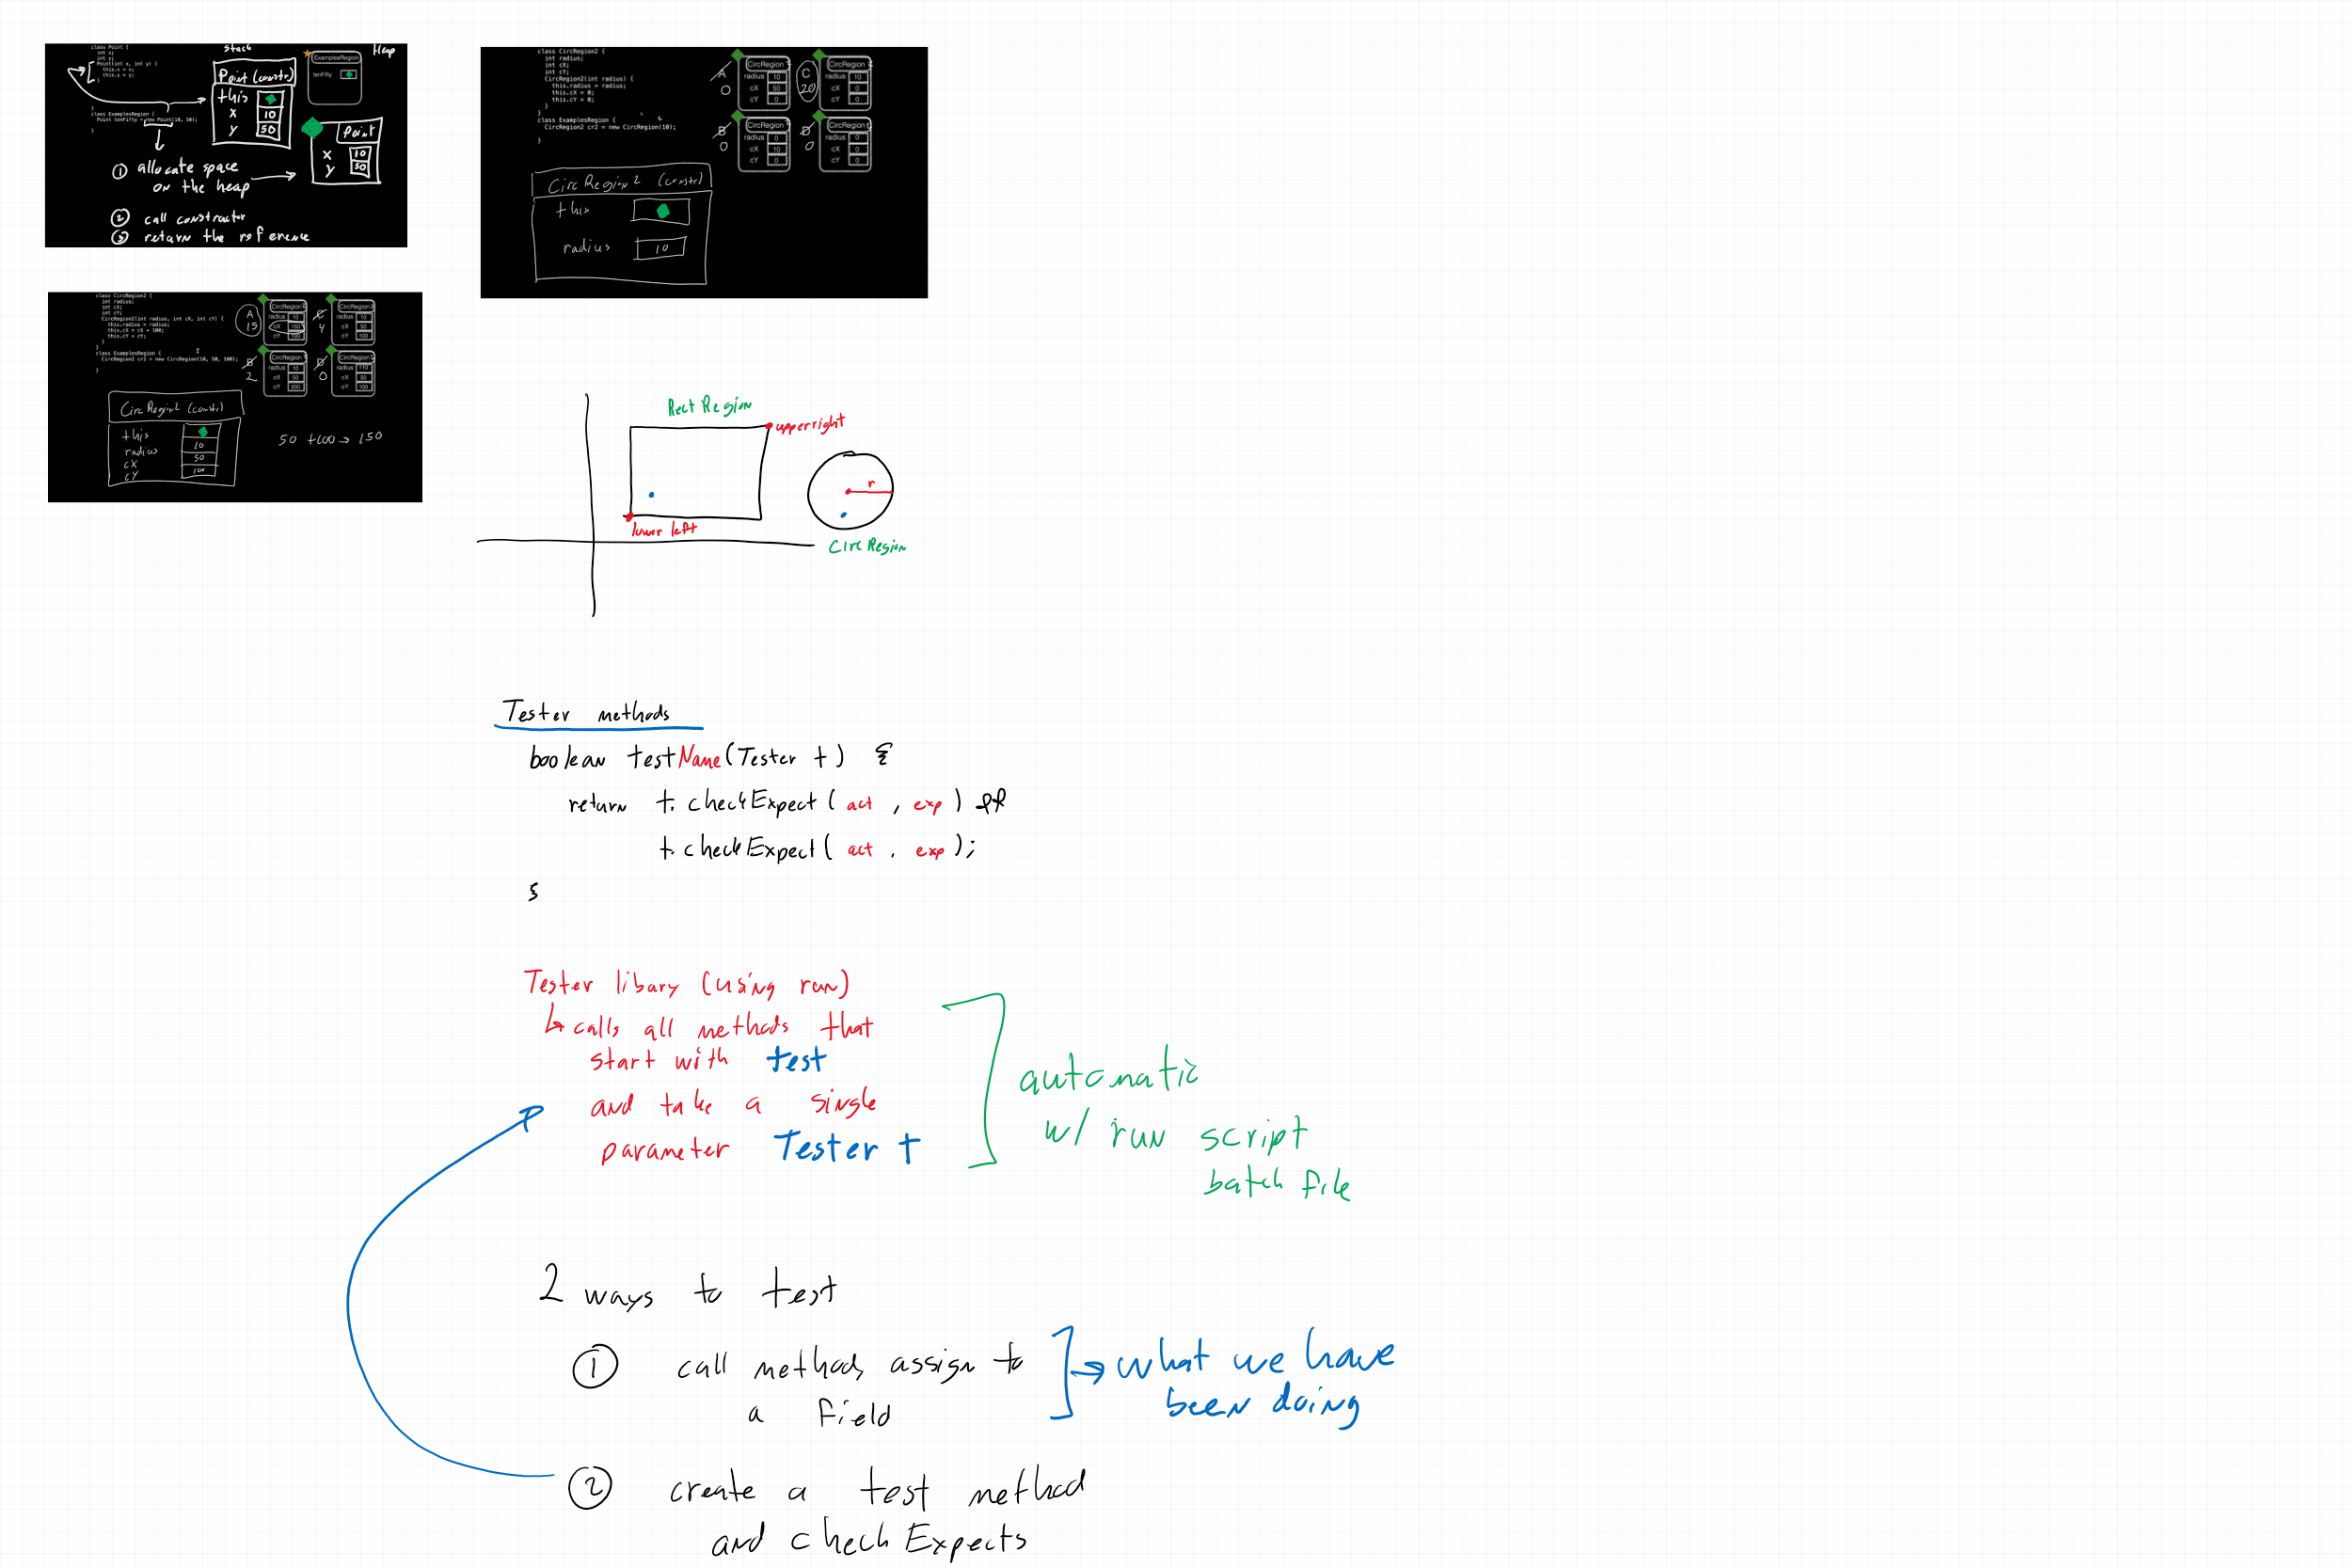 class Point {
int x;
int y;
Point(int x, int y) {
this.x = x;
this.y = y;
}
}
class ExamplesRegion {
Point tenFifty = new Point(10, 50);
}
stack
Heap
Point (constr)
this
x 10
y 50
ExamplesRegion
tenFifty
Point
x 10
y 50
① allocate space
on the heap
② call constructor
③ return the reference
class CircRegion2 {
int radius;
int cX;
int cY;
CircRegion2(int radius) {
this.radius = radius;
this.cX = 0;
this.cY = 0;
}
}
class ExamplesRegion {
CircRegion2 cr2 = new CircRegion(10);
}
2
A
0
CircRegion
radius 10
cX 50
cY 0
C
20
CircRegion
radius 10
cX 0
cY 0
B
0
CircRegion
radius 0
cX 10
cY 0
D
0
CircRegion
radius 0
cX 0
cY 0
CircRegion2 (constr)
this
radius 10
class CircRegion2 {
int radius;
int cX;
int cY;
CircRegion2(int radius, int cX, int cY) {
this.radius = radius;
this.cX = cX + 100;
this.cY = cY;
}
}
class ExamplesRegion {
CircRegion2 cr2 = new CircRegion(10, 50, 100);
}
2
A
15
CircRegion
radius 10
cX 150
cY 100
C
4
CircRegion
radius 10
cX 50
cY 100
B
2
CircRegion
radius 10
cX 50
cY 200
D
0
CircRegion
radius 110
cX 50
cY 100
CircRegion2 (constr)
this
radius 10
cX 50
cY 100
50 +100 → 150
RectRegion
upperright
r
lower left
CircRegion
Tester methods
boolean testName(Tester t) {
return t.checkExpect( act , exp ) &&
t.checkExpect( act , exp );
}
Tester libary (using run)
↳ calls all methods that
start with test
and take a single
parameter Tester t
automatic
w/ run script
batch file
2 ways to test
① call methods assign to
a field
→ what we have
been doing
② create a test method
and checkExpects